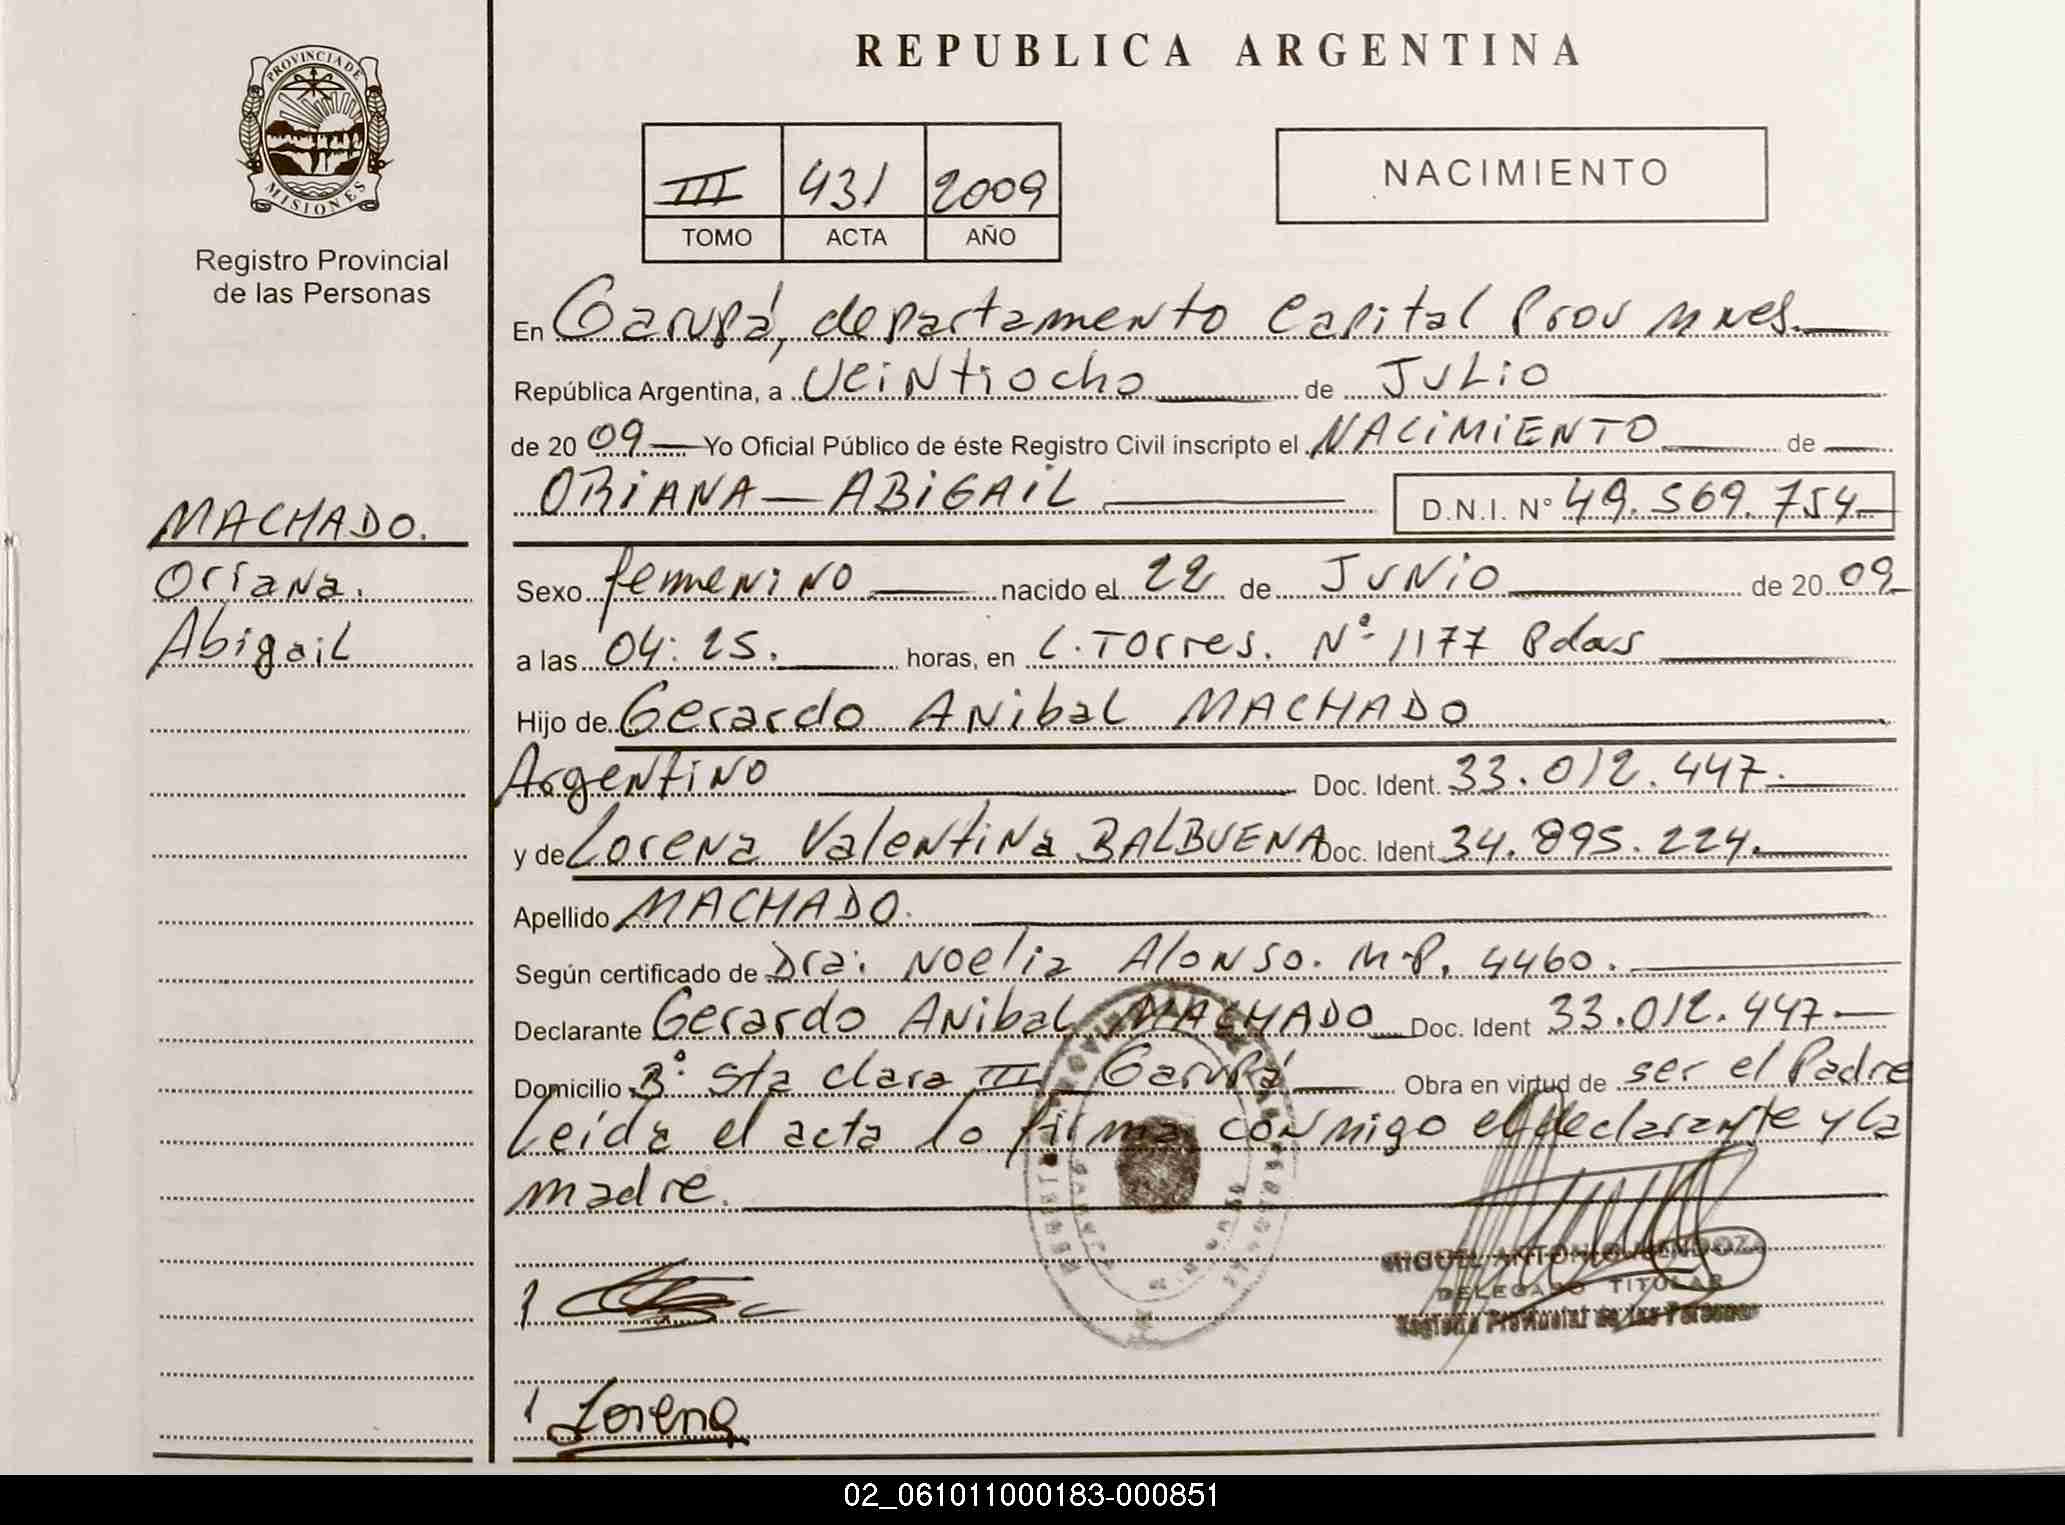 PROVINCIA DE
MISIONES
Registro Provincial
de las Personas
MACHADO.
Oriana.
Abigail
REPUBLICA ARGENTINA
III 431 2009
TOMO ACTA AÑO
NACIMIENTO
En Garupá, departamento Capital Prov Mnes.
República Argentina, a Veintiocho de Julio
de 20 09 Yo Oficial Público de éste Registro Civil inscripto el NACIMIENTO de
ORIANA — ABIGAIL D.N.I. N° 49.569.754
Sexo femenino nacido el 22 de Junio de 20 09
a las 04:25. horas, en C. Torres. N° 1177 Pdas
Hijo de Gerardo Anibal MACHADO
Argentino Doc. Ident. 33.012.447.
y de Lorena Valentina BALBUENA Doc. Ident. 34.895.224.
Apellido MACHADO.
Según certificado de Dra: Noelia Alonso. M.P. 4460.
Declarante Gerardo Anibal MACHADO Doc. Ident 33.012.447.
Domicilio B° Sta Clara III Garupá Obra en virtud de ser el Padre
Leída el acta lo firma conmigo el declarante y la
madre.
MIGUEL ANTONIO MENDOZA
DELEGADO TITULAR
Registro Provincial de las Personas
Lorena
02_061011000183-000851